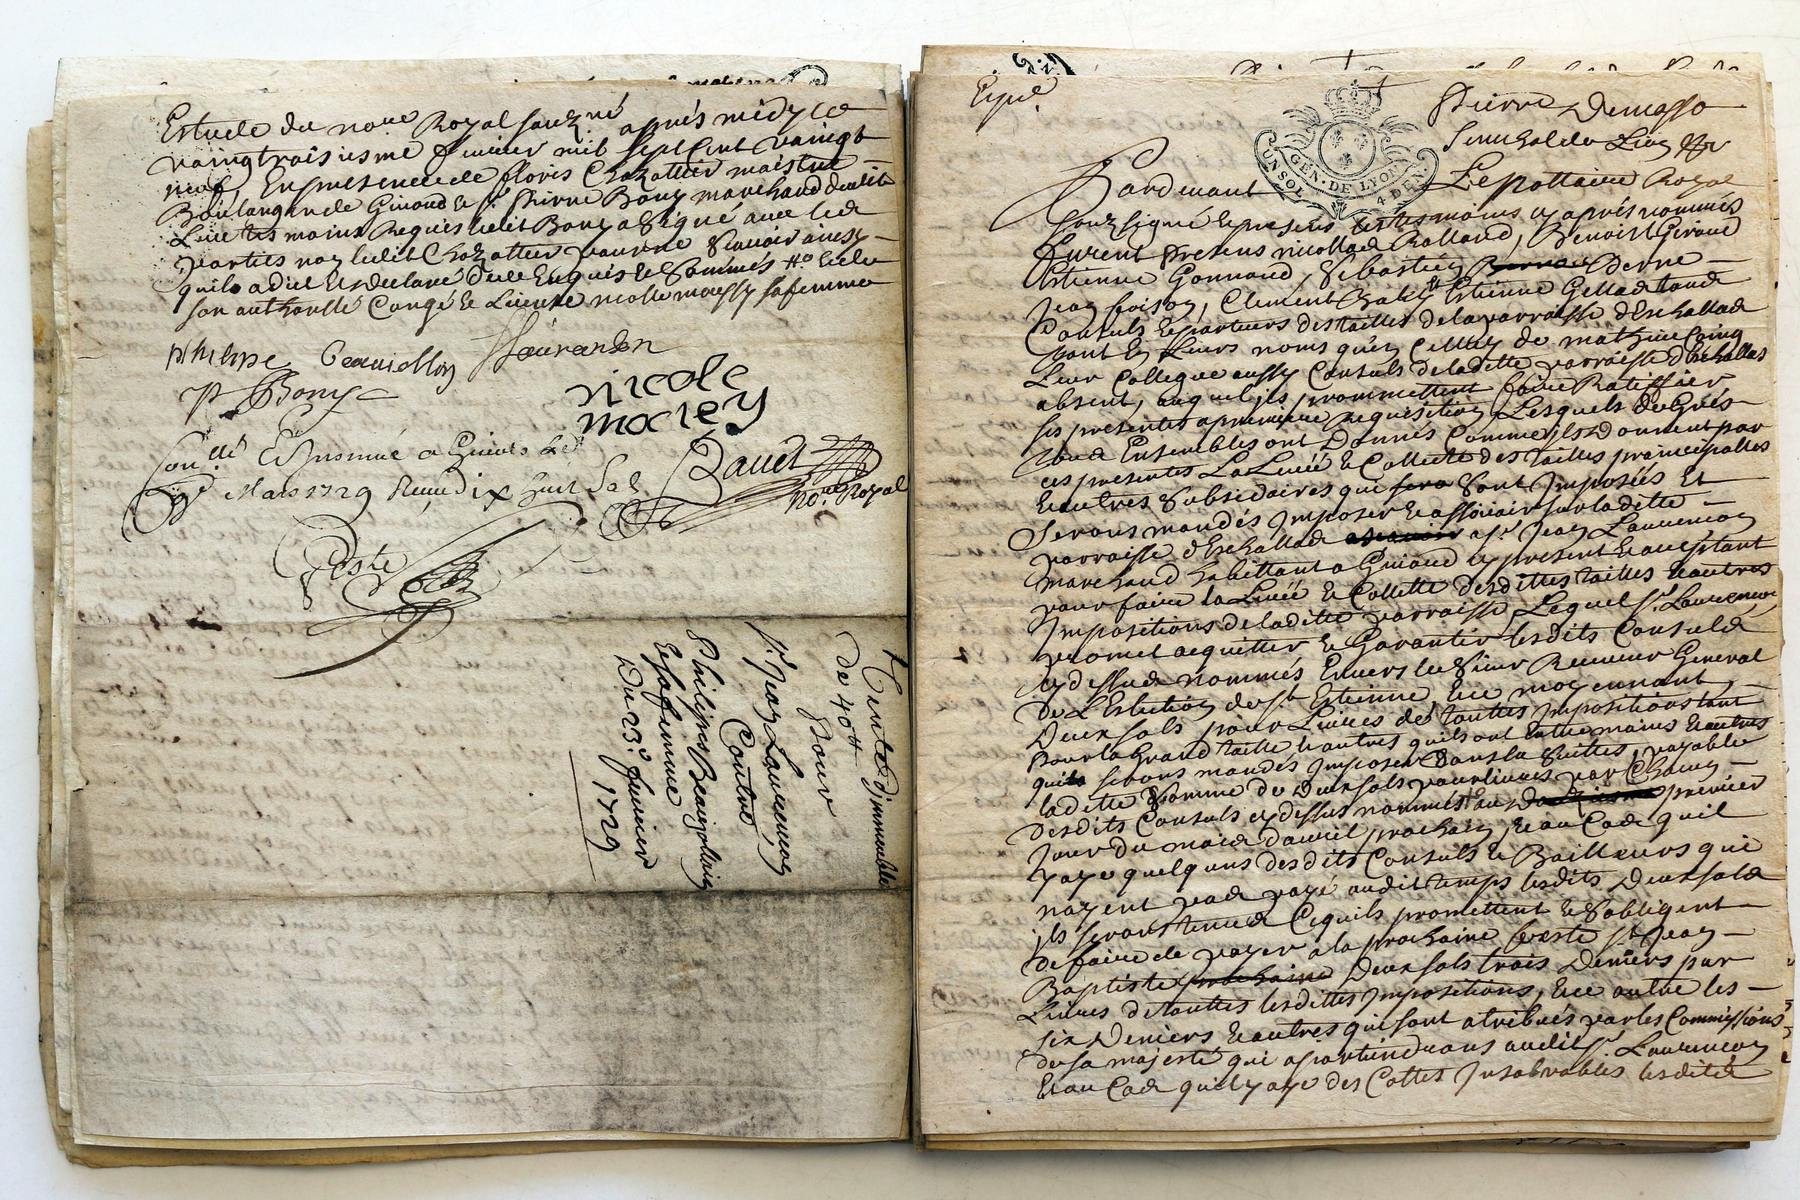 Estude du no.re Royal souz.né après midy ce
vaingtroisiesme feuvrier mil sept cent vaingt
neuf, En presence de flores Chazottier maistre
Boulanger de Givord & s.r Pierre Bony marchand dudit
Lieu tesmoins Requis ledit Bony a signé avec les
parties non ledit Chazottier pour ne sçavoir ainsy
quil a dit et declaré de ce Enquis & sommés
son authorité Congé & Licence nicolle morelly sa femme
philippe Beaujollin Laurenson
p Bony
nicole
morley
Con.llé Et Insinué a Givors le
9e Mars 1729 Reçeu dix huit sols
Ravet
no.re Royal
Coste
Vente d'immeuble
de 40 tt
Pour
s.r Jean Laurencon
Contre
Philippe Beaujollin
Et sa femme
Du 23.e feuvrier
1729
Expé
Pierre Demasso
Senechal de Lion &c
UN SOL GEN. DE LYON 4 DEN.
Pardevant Le Nottaire Royal
soubsigné & presens les tesmoins cy après nommés
furent presens nicollas Rolland, Benoist Giroud
Estienne Gonnaud, Sebastien Derne
Jean foison, Clement, Estienne Gillad tous
Consuls & parteurs des tailles de la parroisse d'Eschallad
tant En Leurs noms qu'en Celluy de mathieu Coing
Leur Collegue aussy Consuls de ladette parroisse d'Eschallas
absent, auquel ils promettent faire Ratiffier
ses presentes a premiere requisition, Lesquels de Grés
tous Ensembles ont Donnés Comme ils Donnent par
ces presentes La Livée & Collecte des tailles principalles
& autres Subsidaires qui sont Imposées Et
Seront mandés Imposer & assoiair sur ladette
parroisse d'Eschallad a s.r Jean Laurencon
marchand habittant a Givord cy present & acceptant
pour faire la Livée & Collette desdittes tailles & autres
Impositions de ladette parroisse, Lequel s.r Laurencon
promet acquitter & Garantir lesdits Consuls
cy dessus nommés Envers le Sieur Receveur General
de L'Eslection de s.t Estienne, & ce moyennant
Deux sols pour Livres de touttes Impositions tant
pour la Grand taille & autres quils ont entre mains & autres
quils seront mandés Imposer Dans la Suitte, payable
ladette Somme de Deux sols pour livres par Chacun
desdits Consuls cy dessus nommés au premier
Jour du mois d'avril prochain, & au Cas quil
y aye quelquns desdits Consuls & Bailleurs qui
nayent pas payé audit temps lesdits Deux sols
ils seront tenus Ce quils promettent & s'obligent
de faire de payer a la prochaine feste s.t Jean
Baptiste prochaine Deux sols trois Deniers par
Livres de touttes lesdittes Impositions, & ce outre les
six Deniers & autres qui sont atribués par les Commissions
de sa majesté qui apartiendrons audit s.r Laurencon
& au Cas quil y aye des Cottes Insolvables lesdits